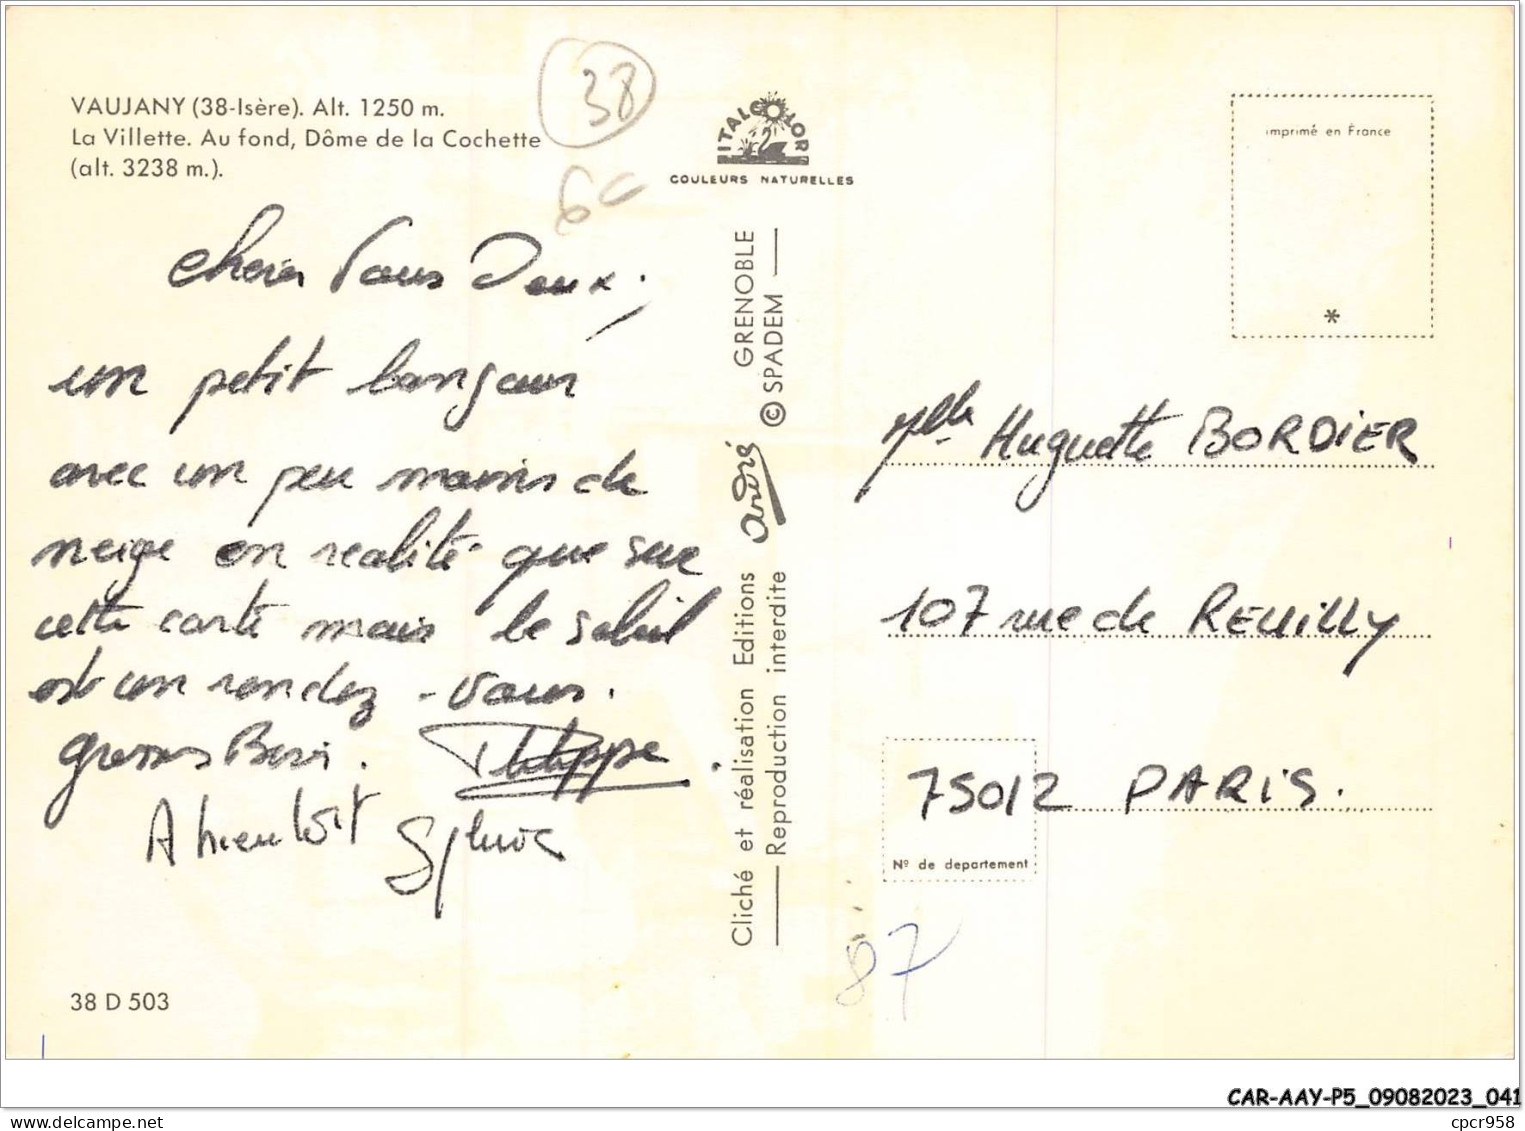 VAUJANY (38-Isère). Alt. 1250 m.
La Villette. Au fond, Dôme de la Cochette
(alt. 3238 m.).
38
ITALCOLOR
COULEURS NATURELLES
imprimé en France
*
chers Vous Deux,
un petit bonjour
avec un peu moins de
neige en realité que sur
cette carte mais le soleil
est un rendez-vous.
grosses Bises. Philippe.
A bientôt Sylvie
38 D 503
Cliché et réalisation Editions André GRENOBLE
Reproduction interdite © SPADEM
Mlle Huguette BORDIER
107 rue de REUILLY
75012 PARIS.
Nº de département
87
CAR-AAY-P5_09082023_041
cpcr958